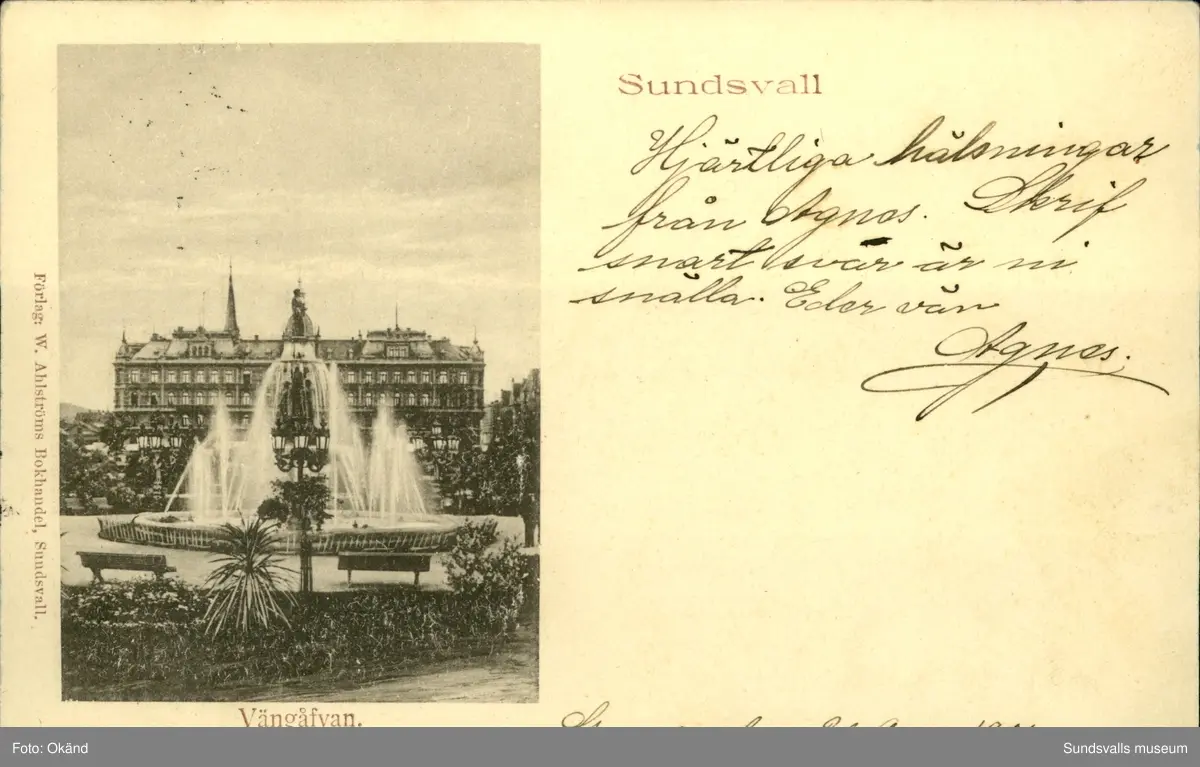 Sundsvall
Hjärtliga hälsningar
från Agnes. Skrif
snart svar är ni
snälla. Eder vän
Agnes.
Förlag: W. Ahlströms Bokhandel, Sundsvall.
Vängåfvan.
Foto: Okänd
Sundsvalls museum